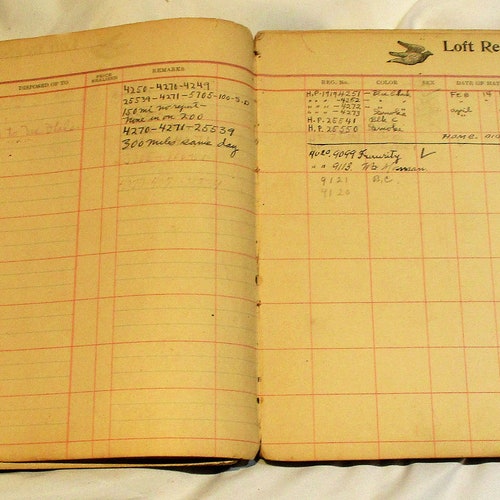 DISPOSED OF TO
PRICE REALIZED
REMARKS
4250-4270-4249
25539-4271-5705-100-S.D
150 mi no report
Home in on 200
4270-4271-25539
300 miles same day
Loft Re
REG. No.
COLOR
SEX
DATE OF HA
H.P. 19194251 - Blue Chek
" " " - 4252 - " "
" " " - 4272 - " "
" " " - 4273 Smokie
H.P. 25541 Blk C
H.P. 25550 Smokie
FEB 14
april
4020, 4099 Futurity ✓
" " 9113
9121 B.C
9120